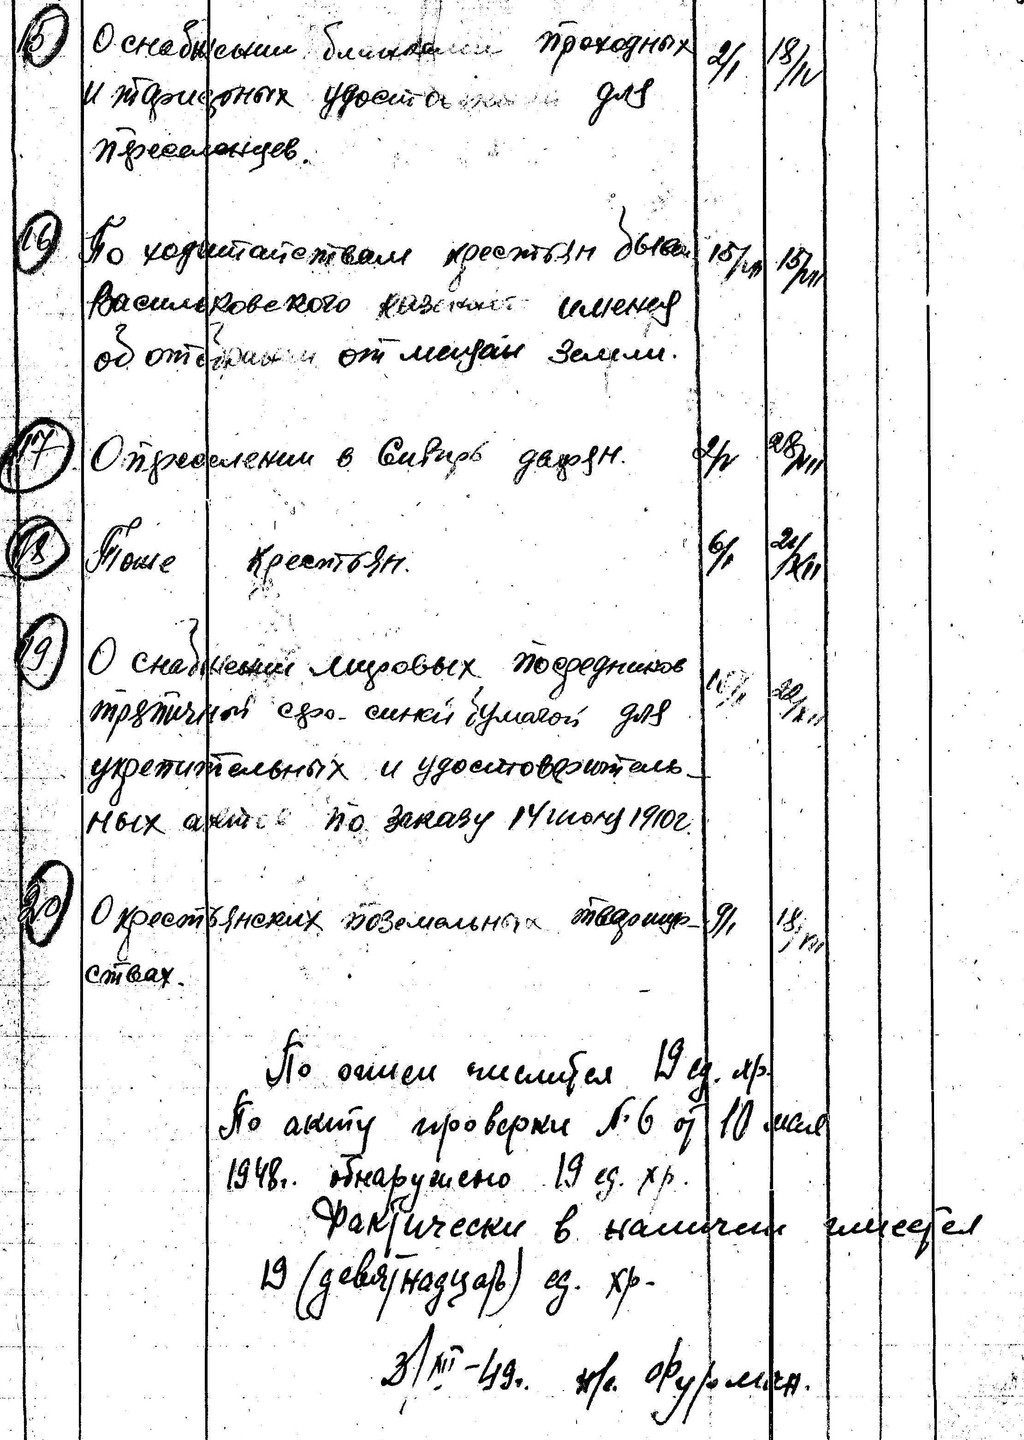 15 О снабжении бланками проходных 2/I 18/IV
и тарифных удостоверений для
переселенцев.
16 По ходатайствам крестьян бывш. 15/VII 15/VII
Васильковского казенного имения
об отобрании от мещан земли.
17 О переселении в Сибирь дворян. 2/V 28/VIII
18 Тоже крестьян. 6/I 21/XII
19 О снабжении мировых посредников
тряпичной серо-синей бумагой для
укрепительных и удостоверитель-
ных актов по заказу 14 июня 1910 г.
20 О крестьянских поземельных товарище- 9/I 18/VIII
ствах.
По описи числится 19 ед. хр.
По акту проверки №6 от 10 мая
1948г. обнаружено 19 ед. хр.
Фактически в наличии имеется
19 (девятнадцать) ед. хр.
3/III-49г. Фурман.